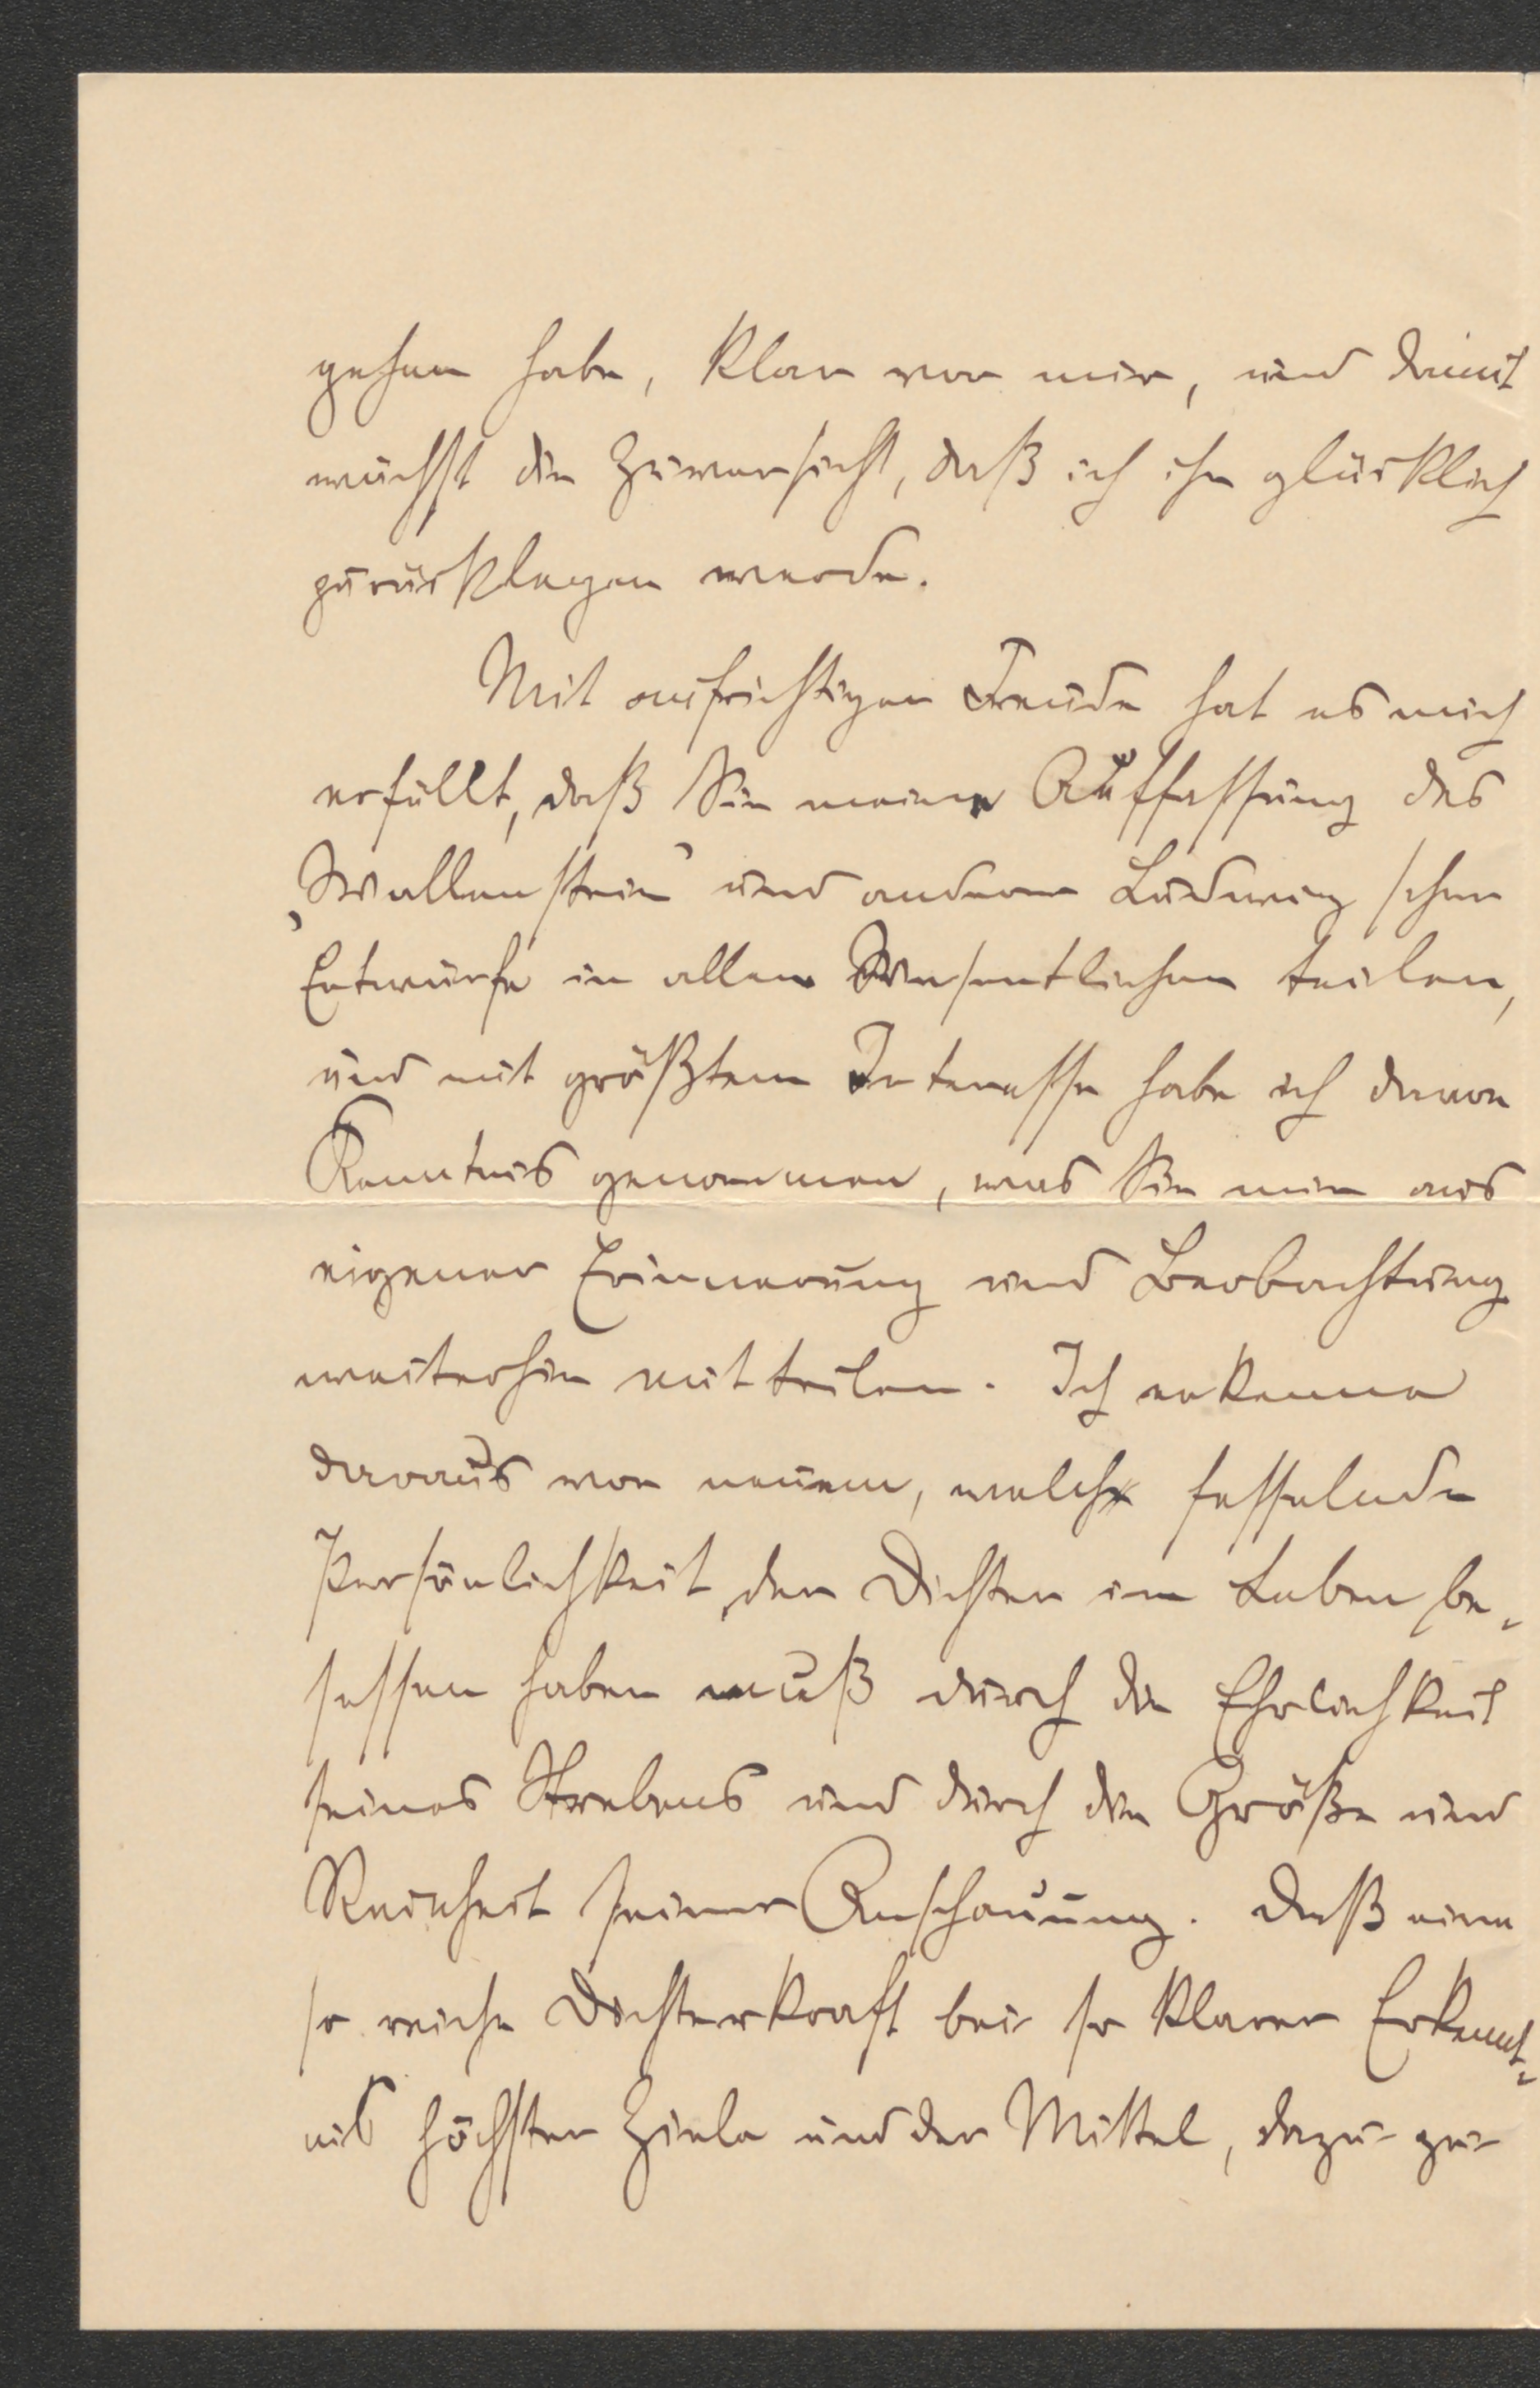 gehen habe, klar vor mir, und damit
wächst die Zuversicht, daß ich ihn glücklich
zurücklegen werde.
Mit aufrichtiger Freude hat es mich
erfüllt, daß Sie meine Auffassung des
„Wallenstein“ und anderer Ludwig'schen
Entwürfe in allem Wesentlichen teilen,
und mit größtem Interesse habe ich davon
Kenntnis genommen, was Sie mir aus
eigener Erinnerung und Beobachtung
weiterhin mitteilen. Ich erkenne
daraus von neuem, welch fesselnde
Persönlichkeit der Dichter im Leben be-
sessen haben muß durch die Ehrlichkeit
seines Strebens und durch die Größe und
Reinheit seiner Anschauung. Daß eine
so reiche Dichterkraft bei so klarer Erkennt-
nis höchster Ziele und der Mittel, dazu zu